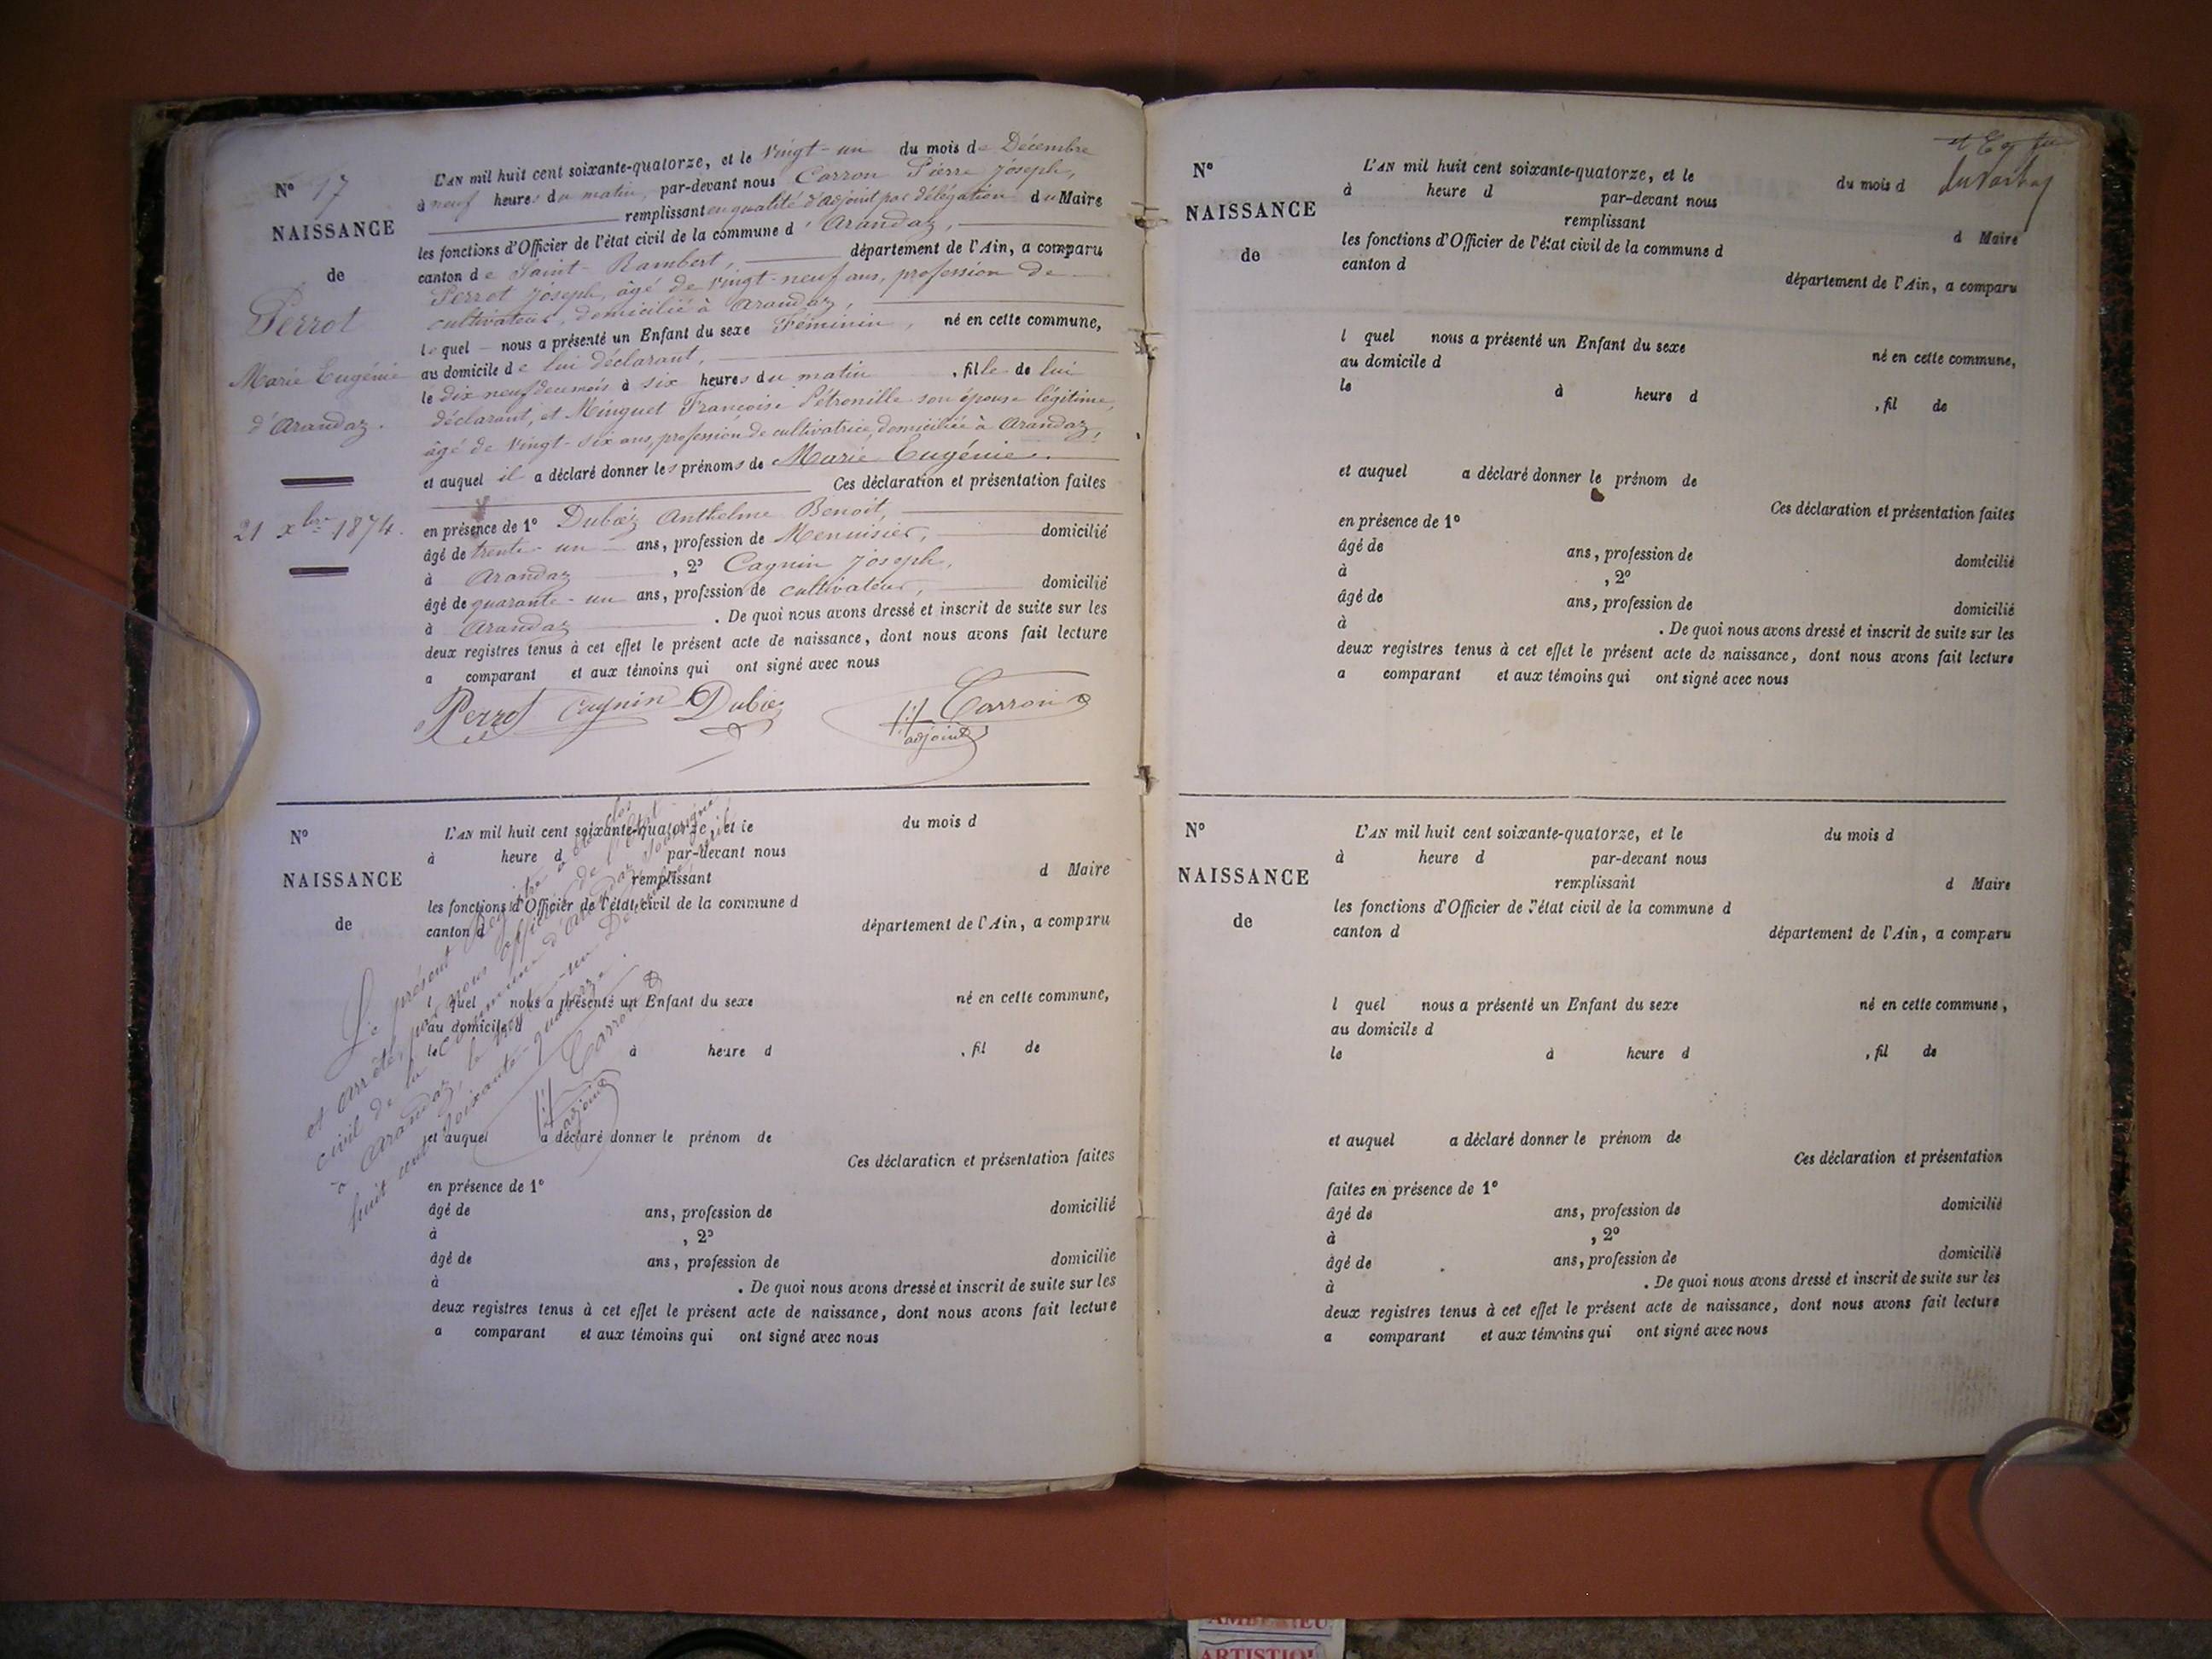 N° 17
NAISSANCE
de
Perrot
Marie Eugénie
d'Arandaz.
21 xbre 1874.
L'AN mil huit cent soixante-quatorze, et le Vingt-un du mois de Décembre
à neuf heures du matin, par-devant nous Carron Pierre Joseph,
remplissant en qualité d'adjoint par délégation du Maire
les fonctions d'Officier de l'état civil de la commune d'Arandaz,
canton de Saint-Rambert, département de l'Ain, a comparu
Perrot Joseph, âgé de vingt-neuf ans, profession de
cultivateur, domicilié à Arandaz,
lequel nous a présenté un Enfant du sexe Féminin, né en cette commune,
au domicile de lui déclarant,
le dix neuf du mois à six heures du matin, fille de lui
déclarant, et Minguet Françoise Pétronille son épouse légitime,
âgé de vingt-six ans, profession de cultivatrice, domiciliée à Arandaz,
et auquel il a déclaré donner les prénoms de Marie Eugénie.
Ces déclaration et présentation faites
en présence de 1° Dubœz Anthelme Benoit,
âgé de trente-un ans, profession de Menuisier, domicilié
à Arandaz, 2° Cagnin Joseph,
âgé de quarante-un ans, profession de cultivateur, domicilié
à Arandaz. De quoi nous avons dressé et inscrit de suite sur les
deux registres tenus à cet effet le présent acte de naissance, dont nous avons fait lecture
a comparant et aux témoins qui ont signé avec nous
Perrot Cagnin Dubœz Carron
adjoint
N°
NAISSANCE
de
L'AN mil huit cent soixante-quatorze, et le du mois d
à heure d par-devant nous
remplissant d Maire
les fonctions d'Officier de l'état civil de la commune d
canton d département de l'Ain, a comparu
l quel nous a présenté un Enfant du sexe né en cette commune,
au domicile d
le à heure d , fil de
et auquel a déclaré donner le prénom de
Ces déclaration et présentation faites
en présence de 1°
âgé de ans, profession de domicilié
à , 2°
âgé de ans, profession de domicilie
à . De quoi nous avons dressé et inscrit de suite sur les
deux registres tenus à cet effet le présent acte de naissance, dont nous avons fait lecture
a comparant et aux témoins qui ont signé avec nous
Le présent Registre a été clos
et arrêté, par nous officier de l'Etat
civil de la Commune d'Arandaz, Soussigné
à Arandaz, le trente-un Décembre mil
huit cent soixante-quatorze.
Carron
adjoint
N°
NAISSANCE
de
L'AN mil huit cent soixante-quatorze, et le du mois d
à heure d par-devant nous
remplissant
d Maire
les fonctions d'Officier de l'état civil de la commune d
canton d
département de l'Ain, a comparu
l quel nous a présenté un Enfant du sexe
né en cette commune,
au domicile d
le à heure d , fil de
et auquel a déclaré donner le prénom de
Ces déclaration et présentation faites
en présence de 1°
âgé de ans, profession de domicilié
à , 2°
âgé de ans, profession de domicilié
à . De quoi nous avons dressé et inscrit de suite sur les
deux registres tenus à cet effet le présent acte de naissance, dont nous avons fait lecture
a comparant et aux témoins qui ont signé avec nous
N°
NAISSANCE
de
L'AN mil huit cent soixante-quatorze, et le du mois d
à heure d par-devant nous
remplissant d Maire
les fonctions d'Officier de l'état civil de la commune d
canton d département de l'Ain, a comparu
l quel nous a présenté un Enfant du sexe né en cette commune,
au domicile d
le à heure d , fil de
et auquel a déclaré donner le prénom de
Ces déclaration et présentation
faites en présence de 1°
âgé de ans, profession de domicilié
à , 2°
âgé de ans, profession de domicilié
à . De quoi nous avons dressé et inscrit de suite sur les
deux registres tenus à cet effet le présent acte de naissance, dont nous avons fait lecture
a comparant et aux témoins qui ont signé avec nous